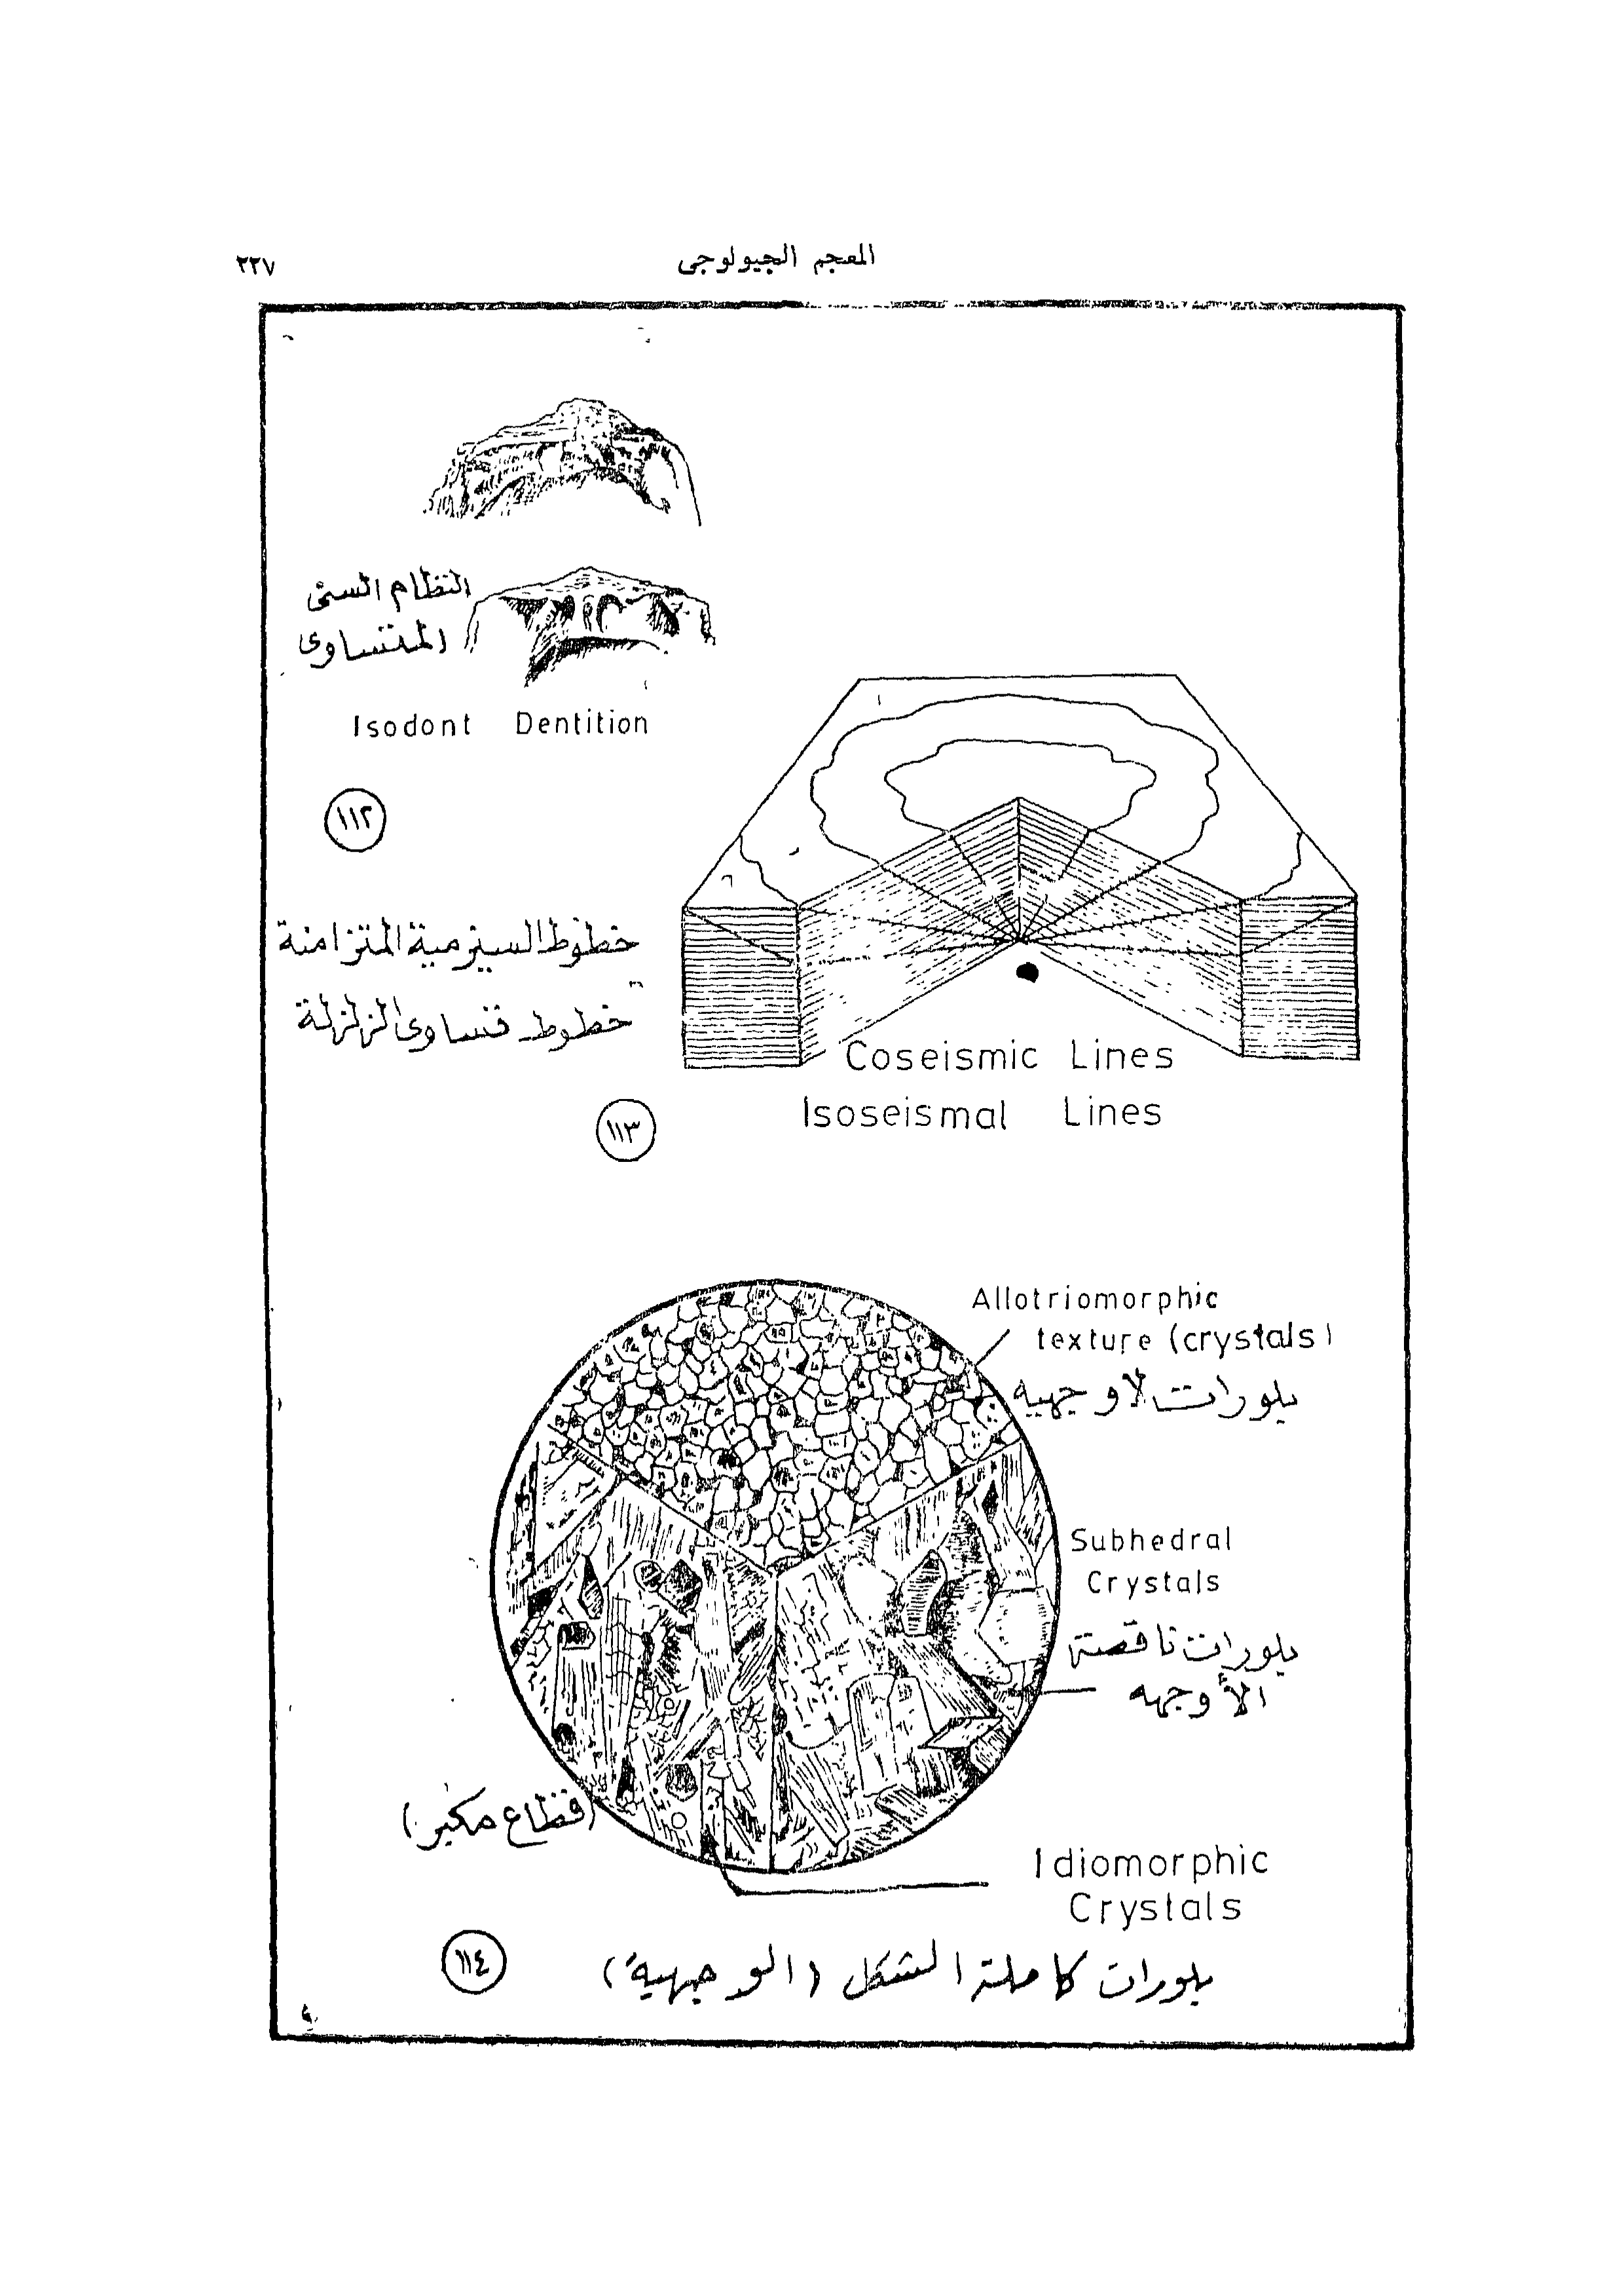 المعجم الجيولوجى
٢٢٧
النظام السنى
المتساوى
Isodont Dentition
١١٢
خطوط السيزمية المتزامنة
خطوط تساوى الزلزلة
Coseismic Lines
Isoseismal Lines
١١٣
Allotriomorphic
texture (crystals)
بلورات لاوجهيه
Subhedral
Crystals
بلورات ناقصة
الأوجهه
(قطاع مكبر)
Idiomorphic
Crystals
بلورات كاملة الشكل (الوجهية)
١١٤